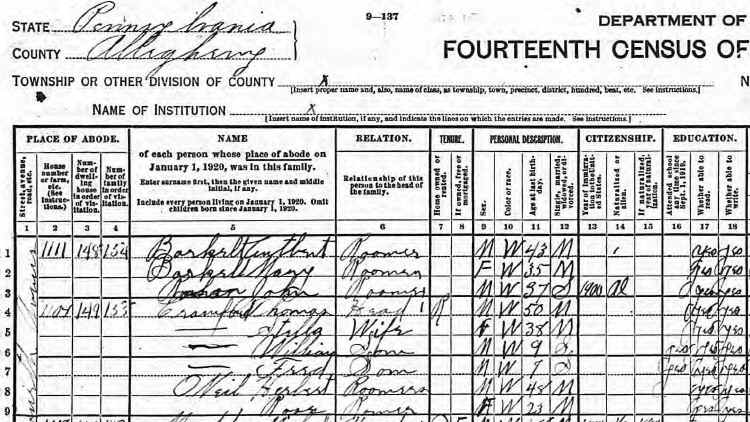 9—137
STATE Pennsylvania
COUNTY Allegheny
DEPARTMENT OF
FOURTEENTH CENSUS OF
TOWNSHIP OR OTHER DIVISION OF COUNTY X N
[Insert proper name and, also, name of class, as township, town, precinct, district, hundred, beat, etc. See instructions.]
NAME OF INSTITUTION X
[Insert name of institution, if any, and indicate the lines on which the entries are made. See instructions.]
PLACE OF ABODE. NAME RELATION. TENURE. PERSONAL DESCRIPTION. CITIZENSHIP. EDUCATION.
Street, avenue, road, etc.
House number or farm, etc. (See instructions.)
Number of dwelling house in order of visitation.
Number of family in order of visitation.
of each person whose place of abode on January 1, 1920, was in this family.
Enter surname first, then the given name and middle initial, if any.
Include every person living on January 1, 1920. Omit children born since January 1, 1920.
Relationship of this person to the head of the family.
Home owned or rented.
If owned, free or mortgaged.
Sex.
Color or race.
Age at last birthday.
Single, married, widowed, or divorced.
Year of immigration to the United States.
Naturalized or alien.
If naturalized, year of naturalization.
Attended school any time since Sept. 1, 1919.
Whether able to read.
Whether able to write.
1 2 3 4 5 6 7 8 9 10 11 12 13 14 15 16 17 18
1 1111 148 154 Roomer M W 43 M yes yes
2 Mary Roomer F W 35 M yes yes
3 John Roomer M W 37 S 1900 al yes
4 149 155 Crawford Thomas Head R M W 50 M yes yes
5 — Wife F W 38 M yes yes
6 — William Son M W 9 S yes yes yes
7 — Fred Son M W 7 S yes yes yes
8 Herbert Roomer M W 48 M yes yes
9 Rose Roomer F W 23 M yes yes